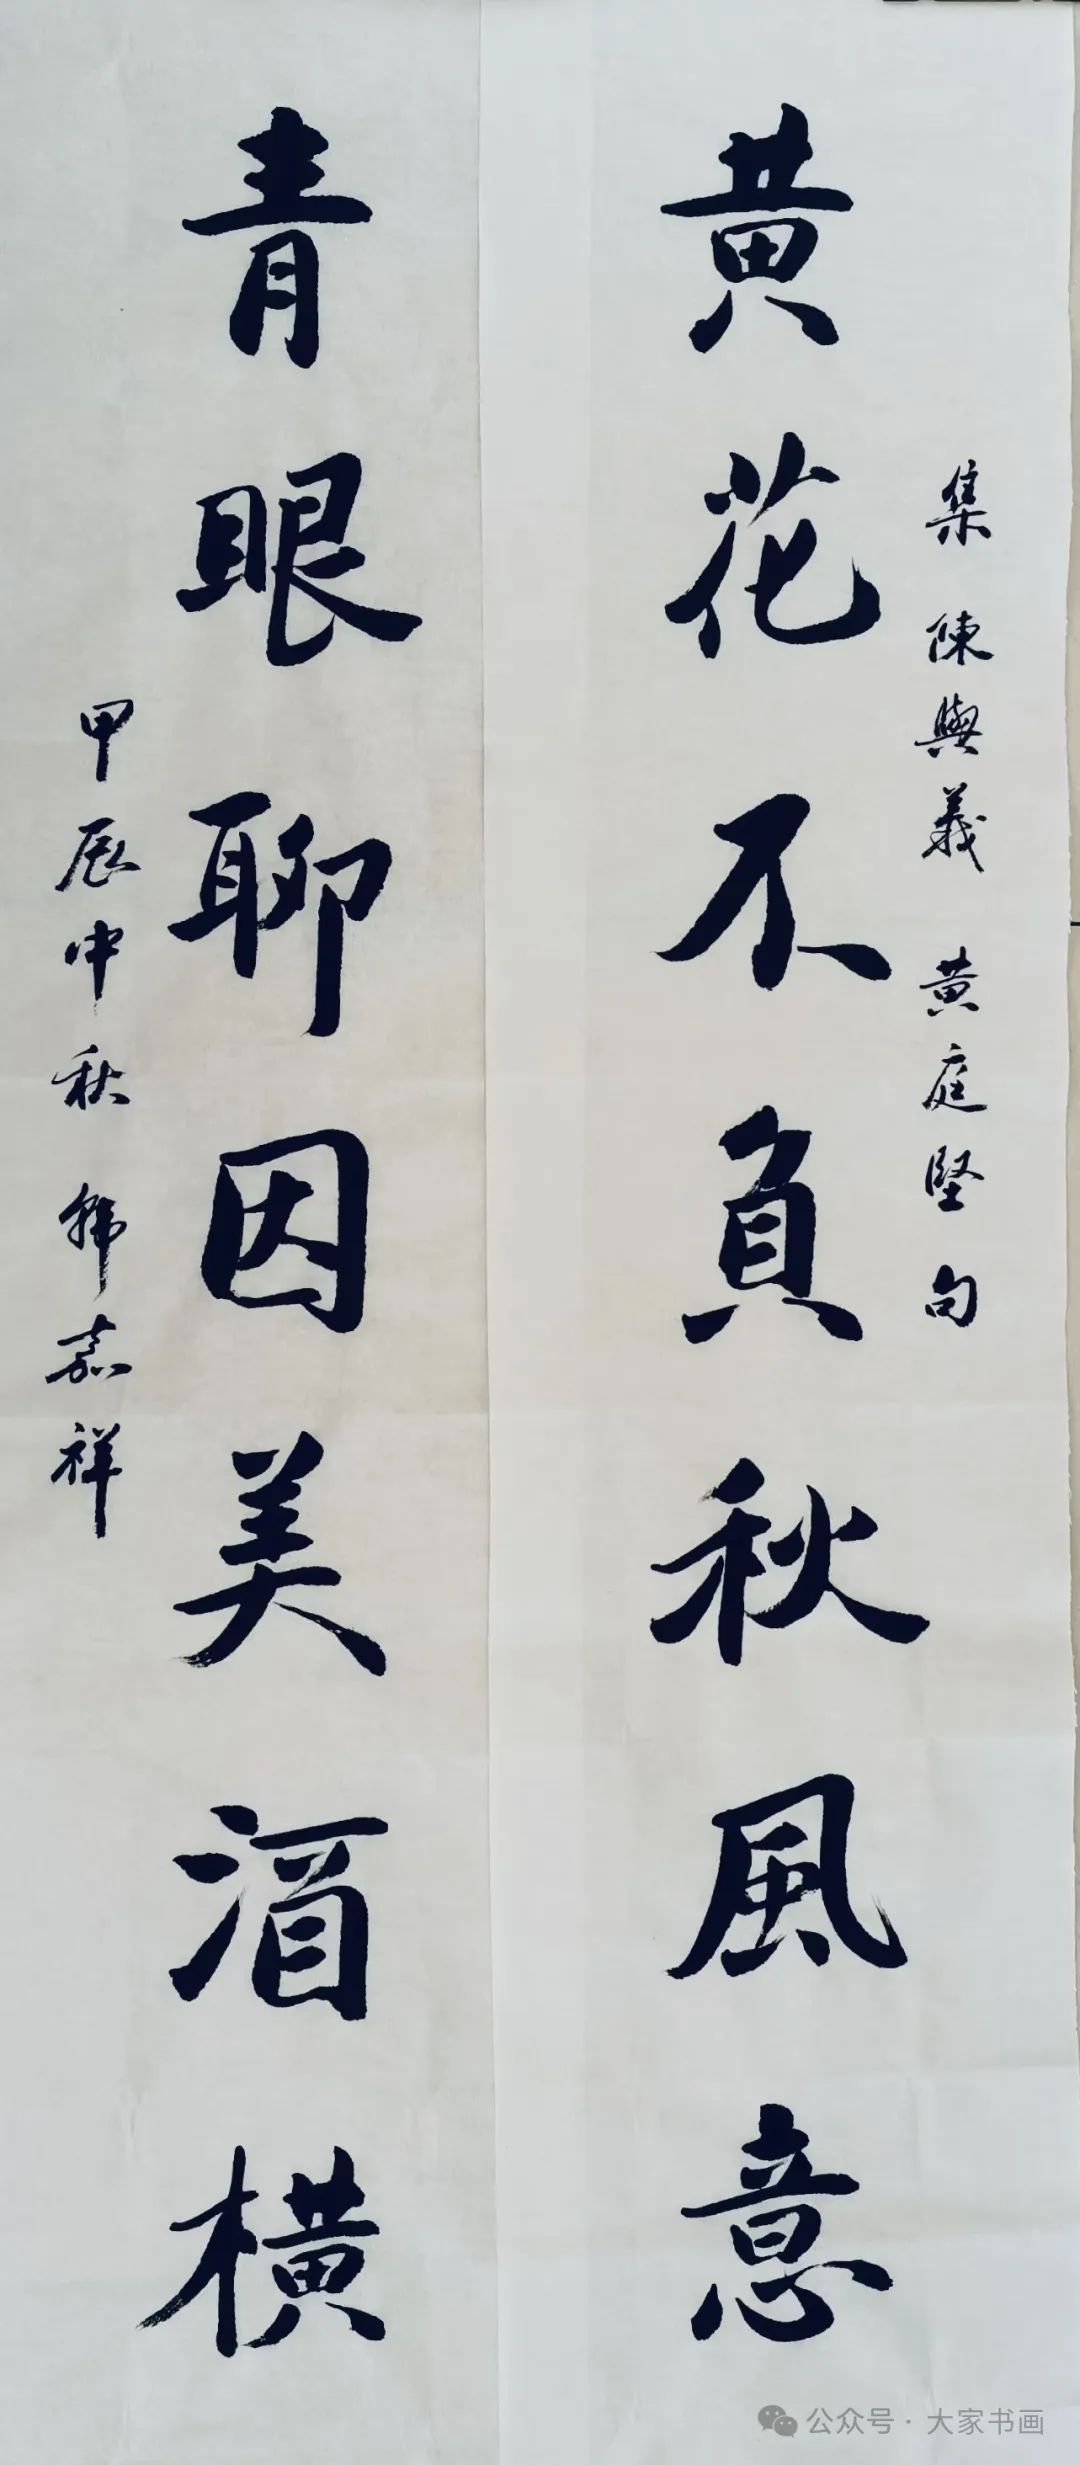 集陳與義 黄庭堅句
黄花不負秋風意
青眼聊因美酒橫
甲辰中秋 韩嘉祥
公众号·大家书画